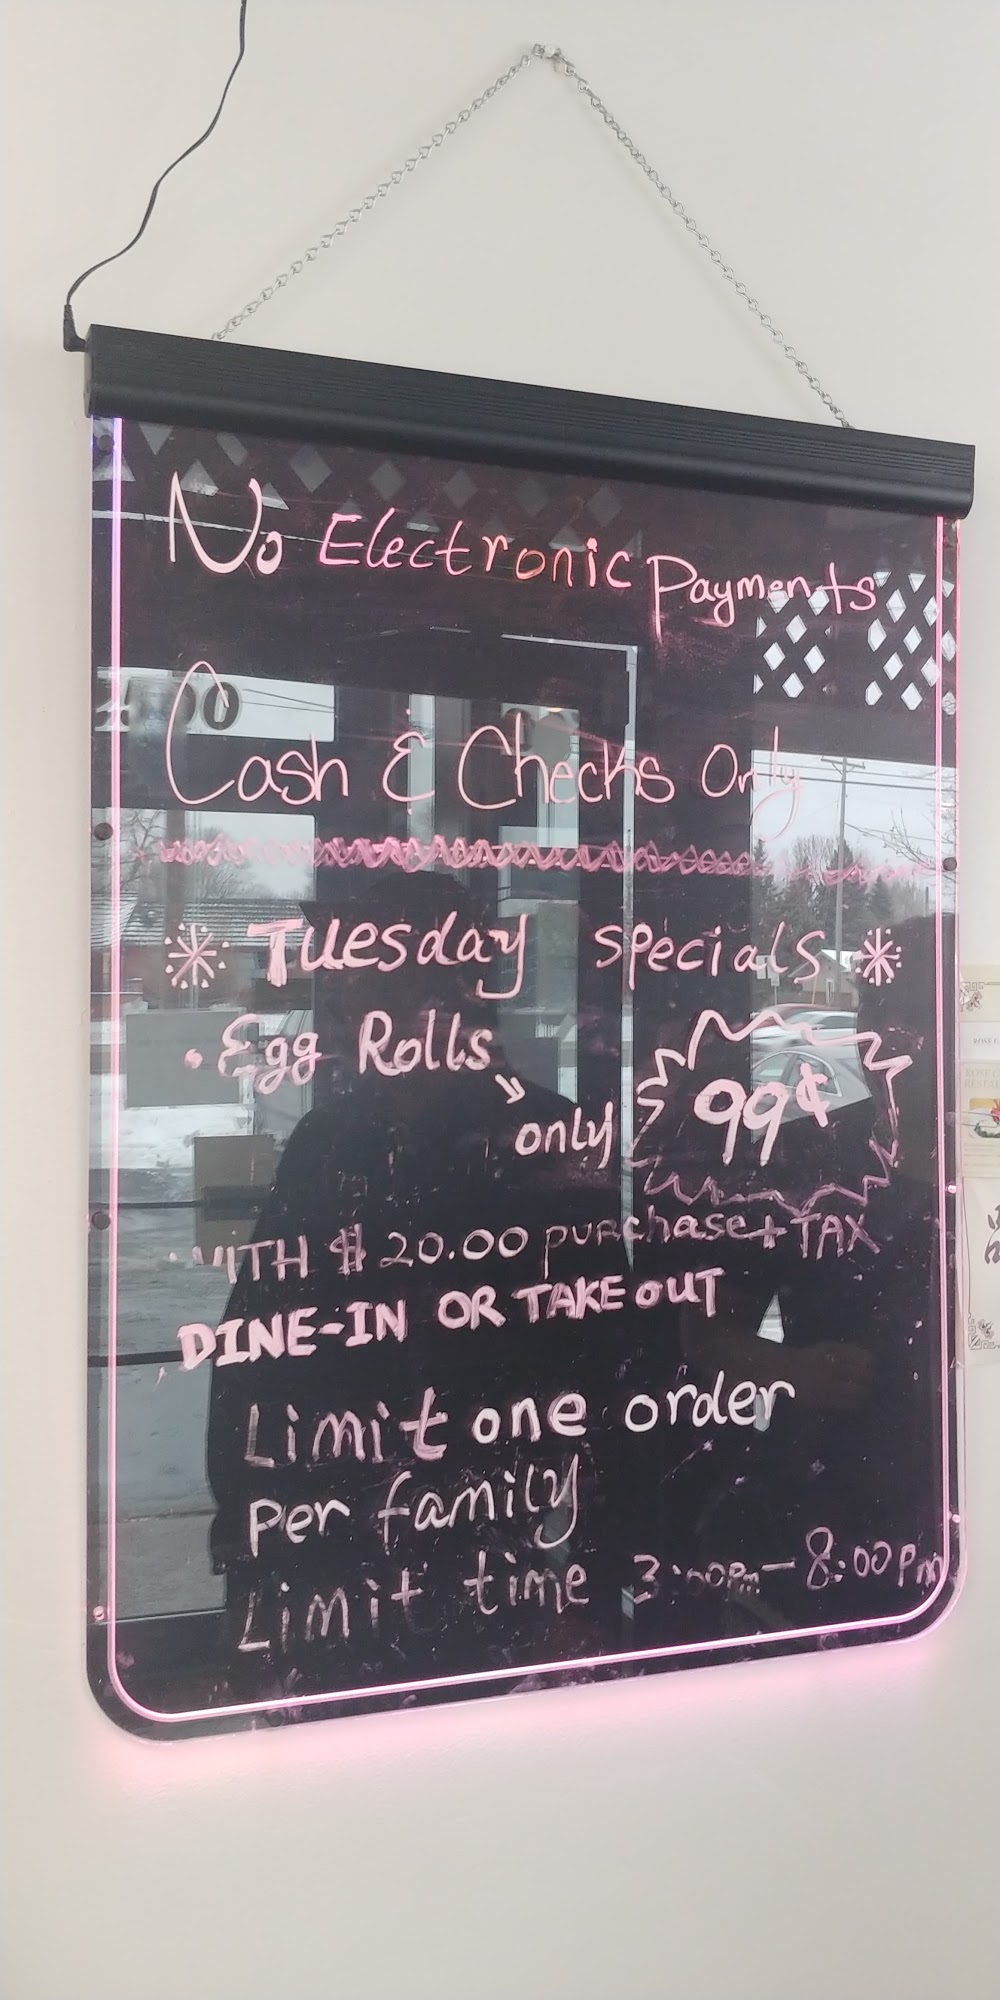 No Electronic Payments
Cash & Checks Only
Tuesday specials
• Egg Rolls
only 99¢
WITH $20.00 purchase + TAX
DINE-IN OR TAKE OUT
Limit one order
per family
Limit time 3:00pm - 8:00pm